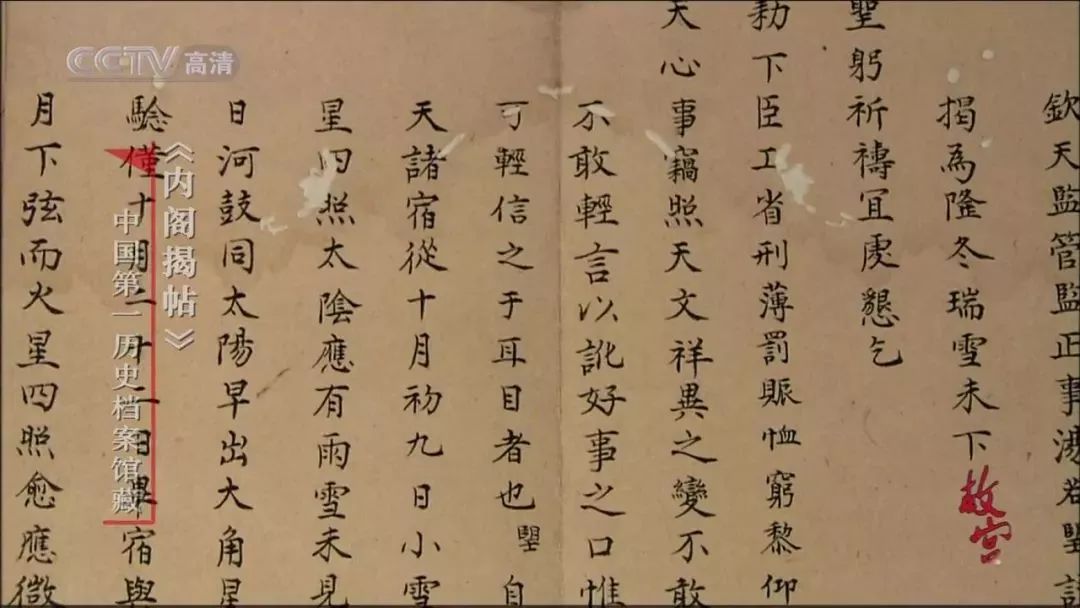 欽天監管監正事湯若望
揭為隆冬瑞雪未下
聖躬祈禱宜虔懇乞
勑下臣工省刑薄罰賑恤窮黎仰
天心事竊照天文祥異之變不敢
不敢輕言以訛好事之口惟
可輕信之于耳目者也望自
天諸宿從十月初九日小雪
星四照太陰應有雨雪未見
日河鼓同太陽早出大角星
驗僅十月二十二日畢宿與
月下弦而火星四照愈應微
CCTV高清
《内阁揭帖》
中国第一历史档案馆藏
故宫